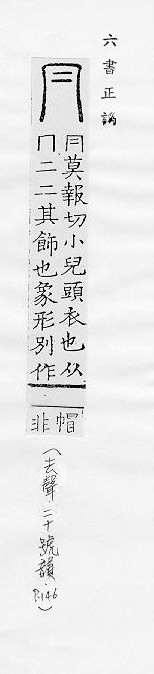 六書正譌
冃
冃莫報切小兒頭衣也从
冂二二其飾也象形別作
帽非
(去聲二十號韻.P.146)